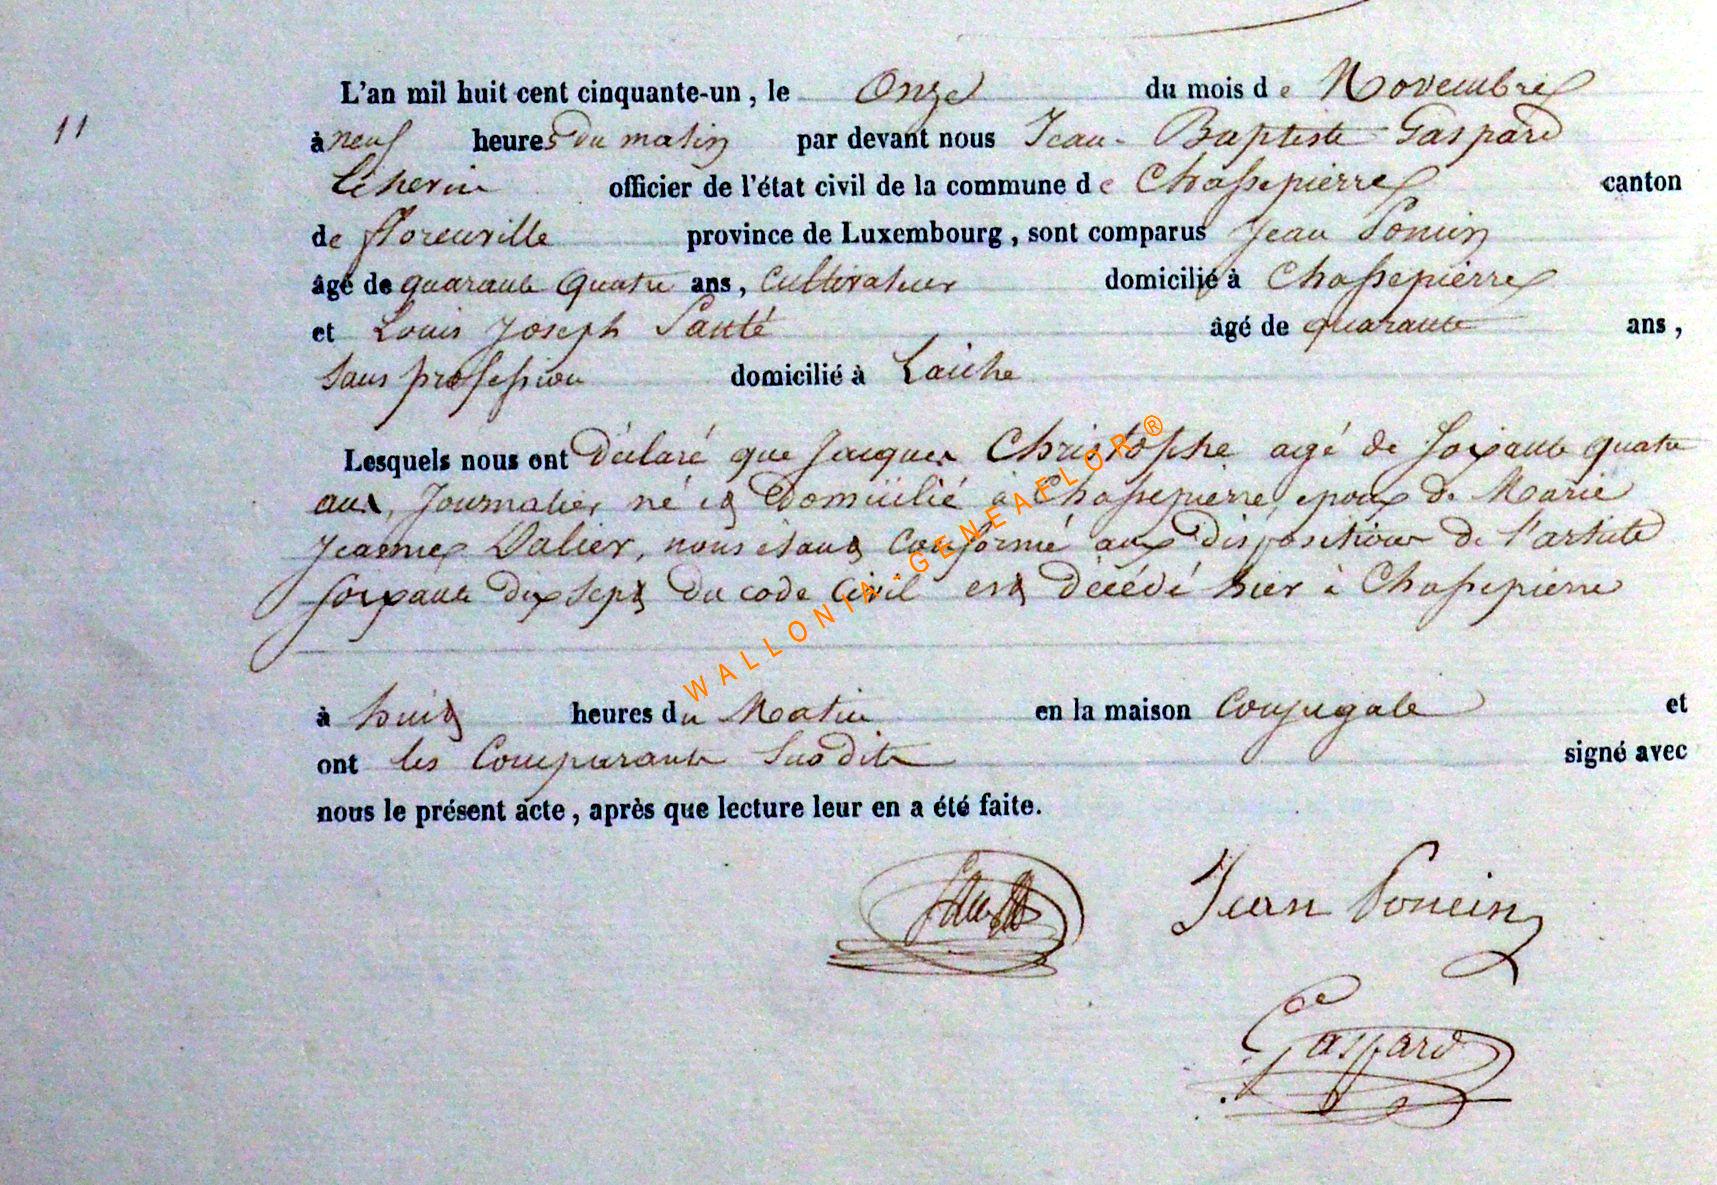 L'an mil huit cent cinquante-un, le Onze du mois de Novembre
11
à neuf heures du matin par devant nous Jean-Baptiste Gaspard
échevin officier de l'état civil de la commune de Chassepierre canton
de florenville province de Luxembourg, sont comparus Jean Poncin
âgé de quarante quatre ans, Cultivateur domicilié à Chassepierre
et Louis Joseph Santé âgé de quarante ans,
Sans profession domicilié à Laiche
Lesquels nous ont Déclaré que Jacques Christophe agé de Soixante quatre
ans, Journalier né et Domicilié à Chassepierre, epoux de Marie
Jeanne Dalier, nous étant conformé aux Dispositions de l'article
Soixante dix sept du code Civil est décédé hier à Chassepierre
à huit heures du Matin en la maison Conjugale et
ont les Comparants Susdits signé avec
nous le présent acte, après que lecture leur en a été faite.
Jean Poncin
Gaspard
WALLONIA-GENEAFLOR®